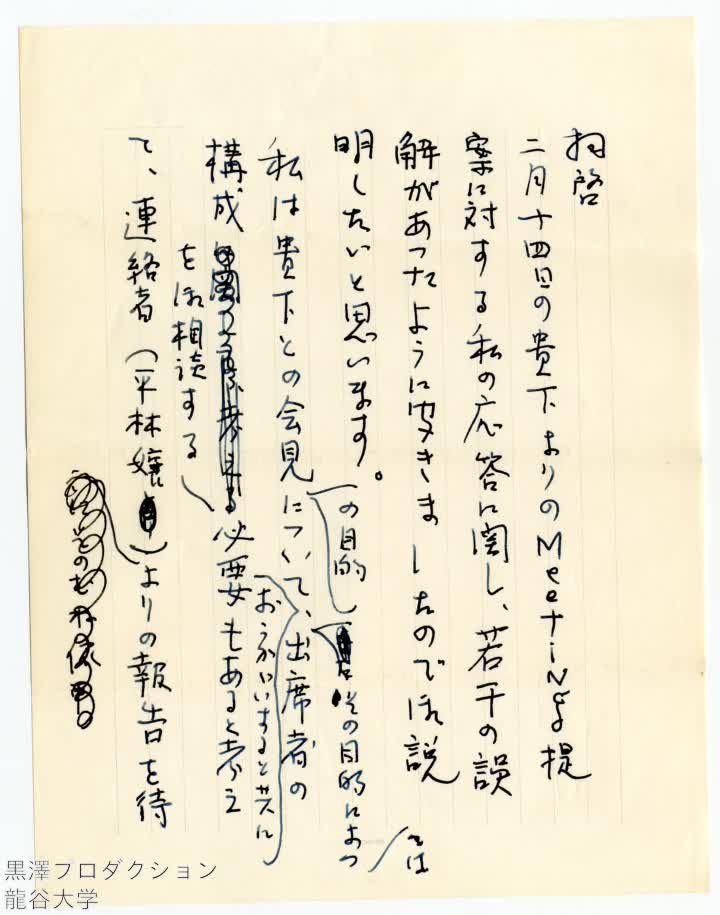 拝啓
二月十四日の貴下よりのMeeting提
案に対する私の応答に関し、若干の誤
解があったように聞きましたのでご説
明したいと思います。
私は貴下との会見について、出席者の
の目的
その目的によっ
ては
おうかがいすると共に
構成
必要もあると考え
をご相談する
て、連絡者(平林嬢)よりの報告を待
黒澤プロダクション
龍谷大学